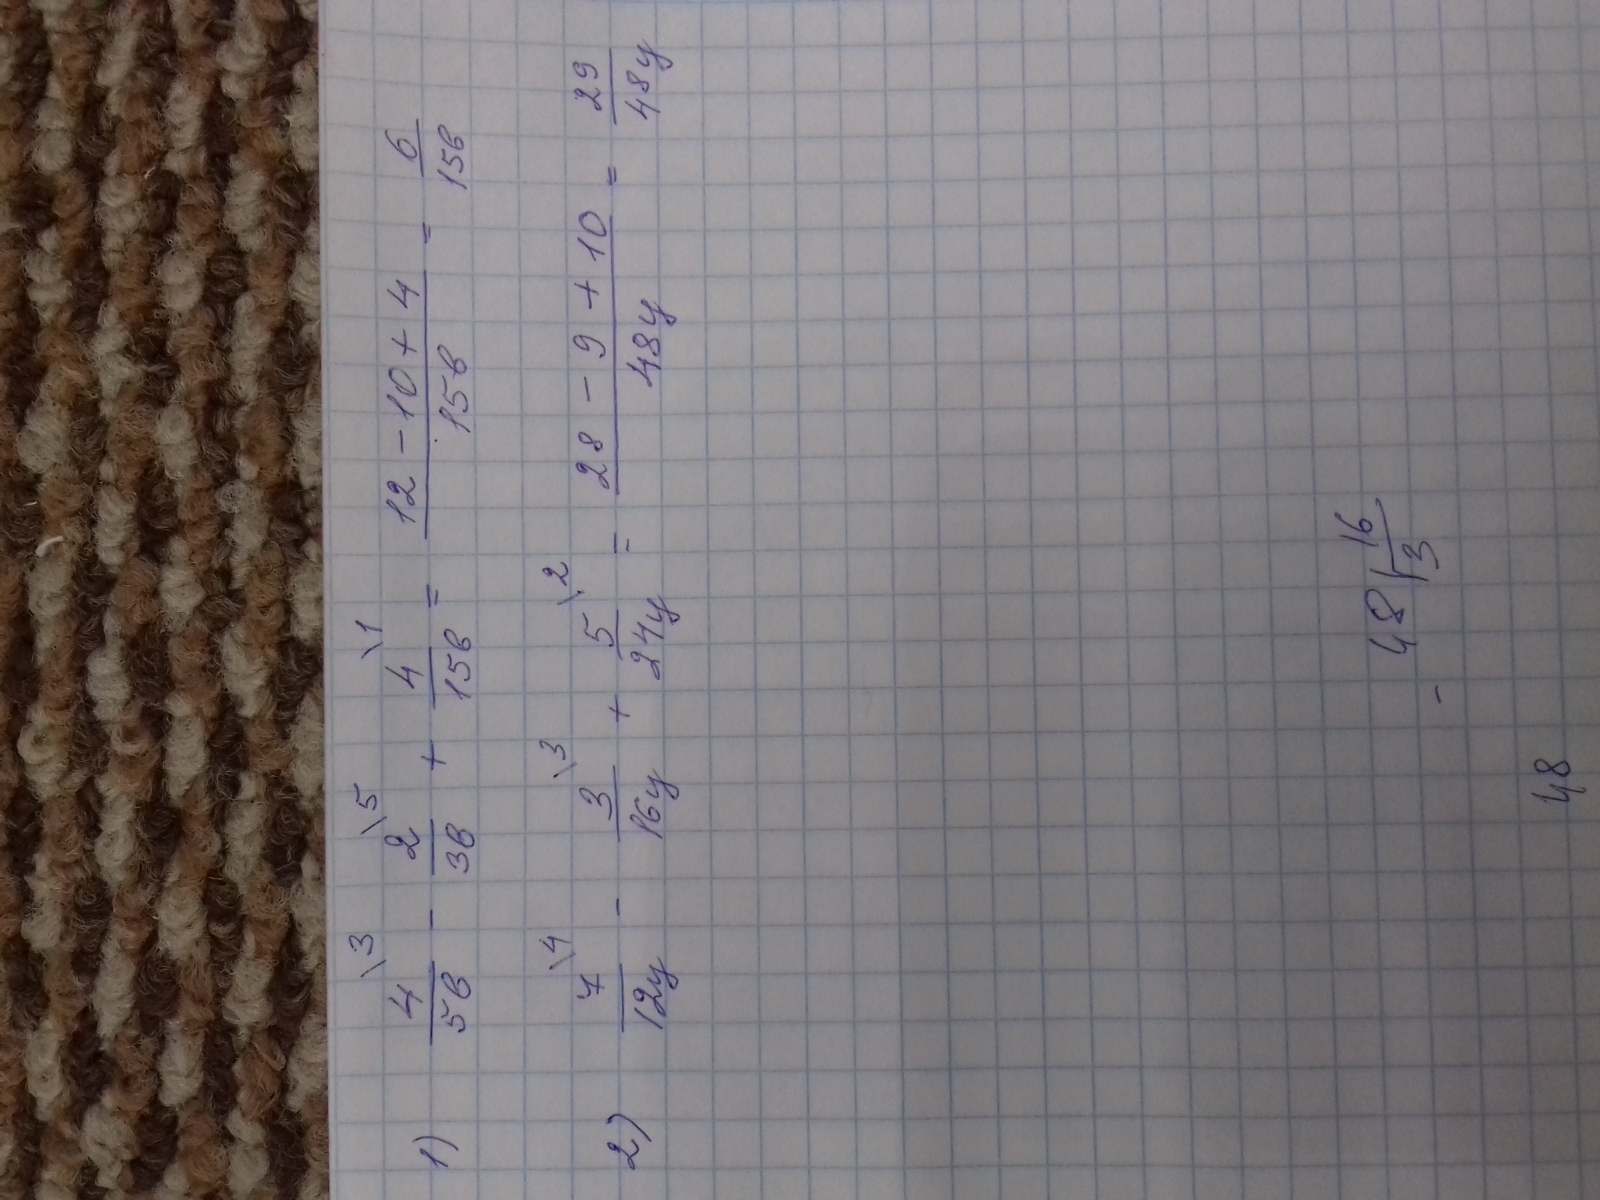 1) 4/5в \3 - 2/3в \5 + 4/15в \1 = 12-10+4/15в = 6/15в
2) 7/12y \4 - 3/16y \3 + 5/24y \2 = 28-9+10/48y = 29/48y
48 16
- 3
48